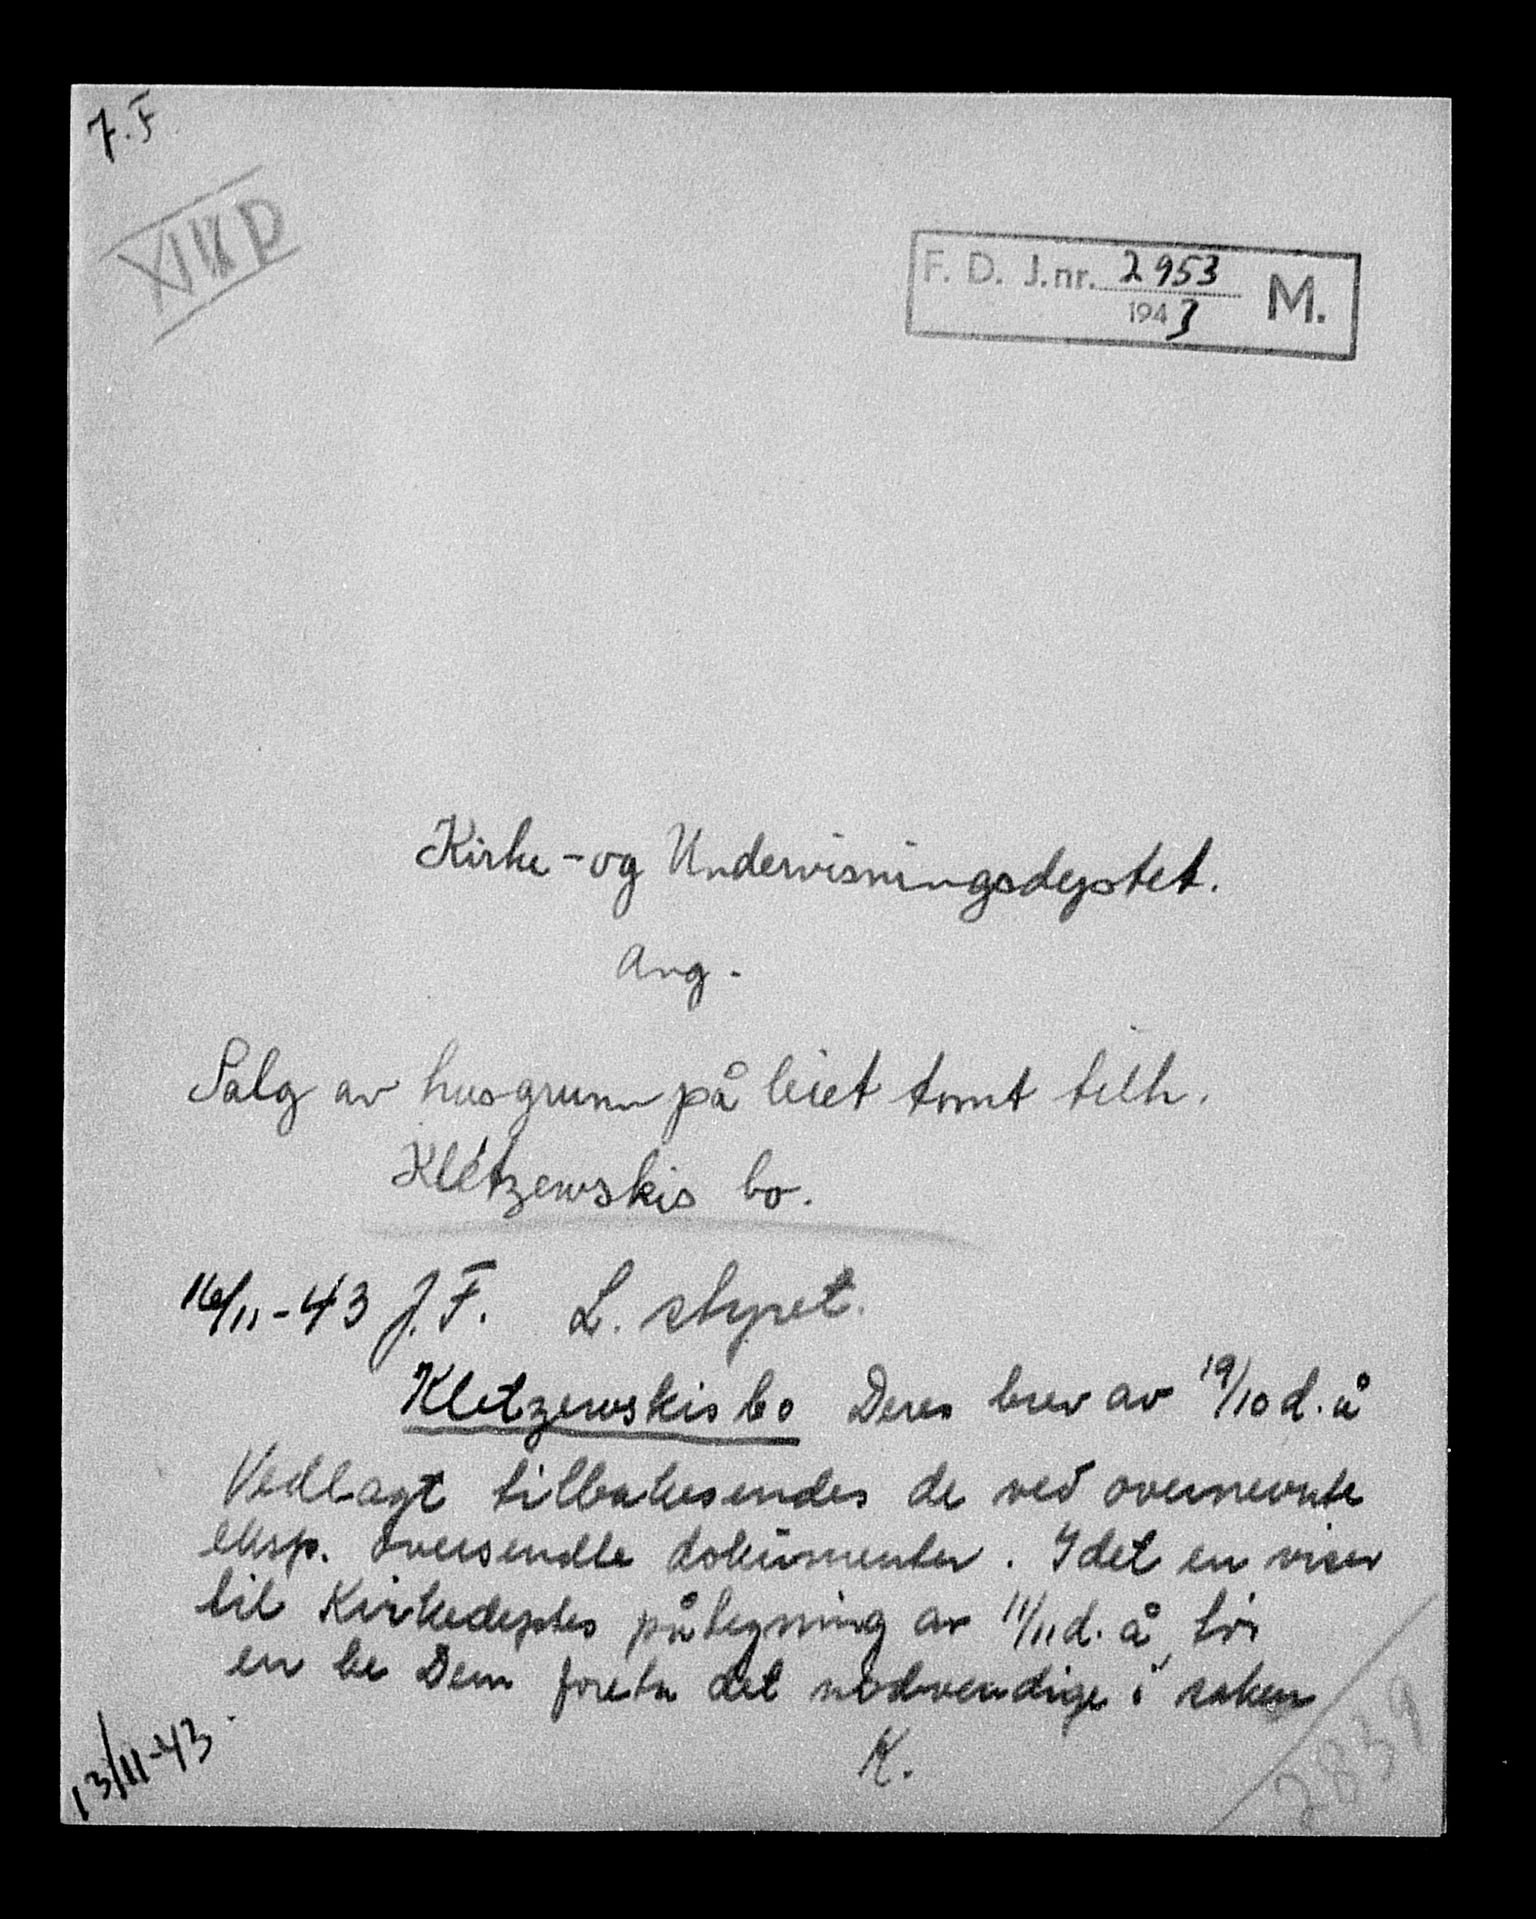 J. F
F. D. J.nr. 2953 M.
1943
Kirke- og Undervisningsdeptet.
Ang.
Salg av husgrunn på leiet tomt tilh.
Kletzewskis bo.
16/11-43 J. F. L. styret.
Kletzewskis bo Deres brev av 19/10 d. å
Vedlagt tilbakesendes de ved ovennevnte
eksp. oversendte dokumenter. Idet en viser
til Kirkedeptes påtegning av 11/11 d. å, tør
en be Dem foreta det nødvendige i saken
K.
13/11-43.
2839